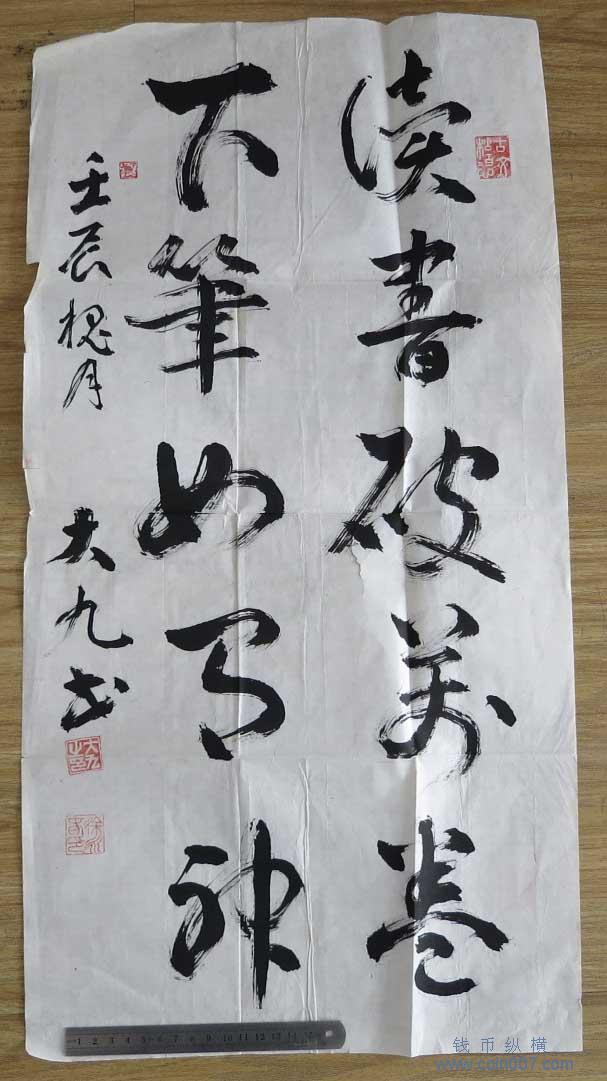 读书破万卷
下筆如有神
壬辰槐月
大九书
大九之印
1 2 3 4 5 6 7 8 9 10 11 12 13 14 15
钱币纵横
www.coin007.com